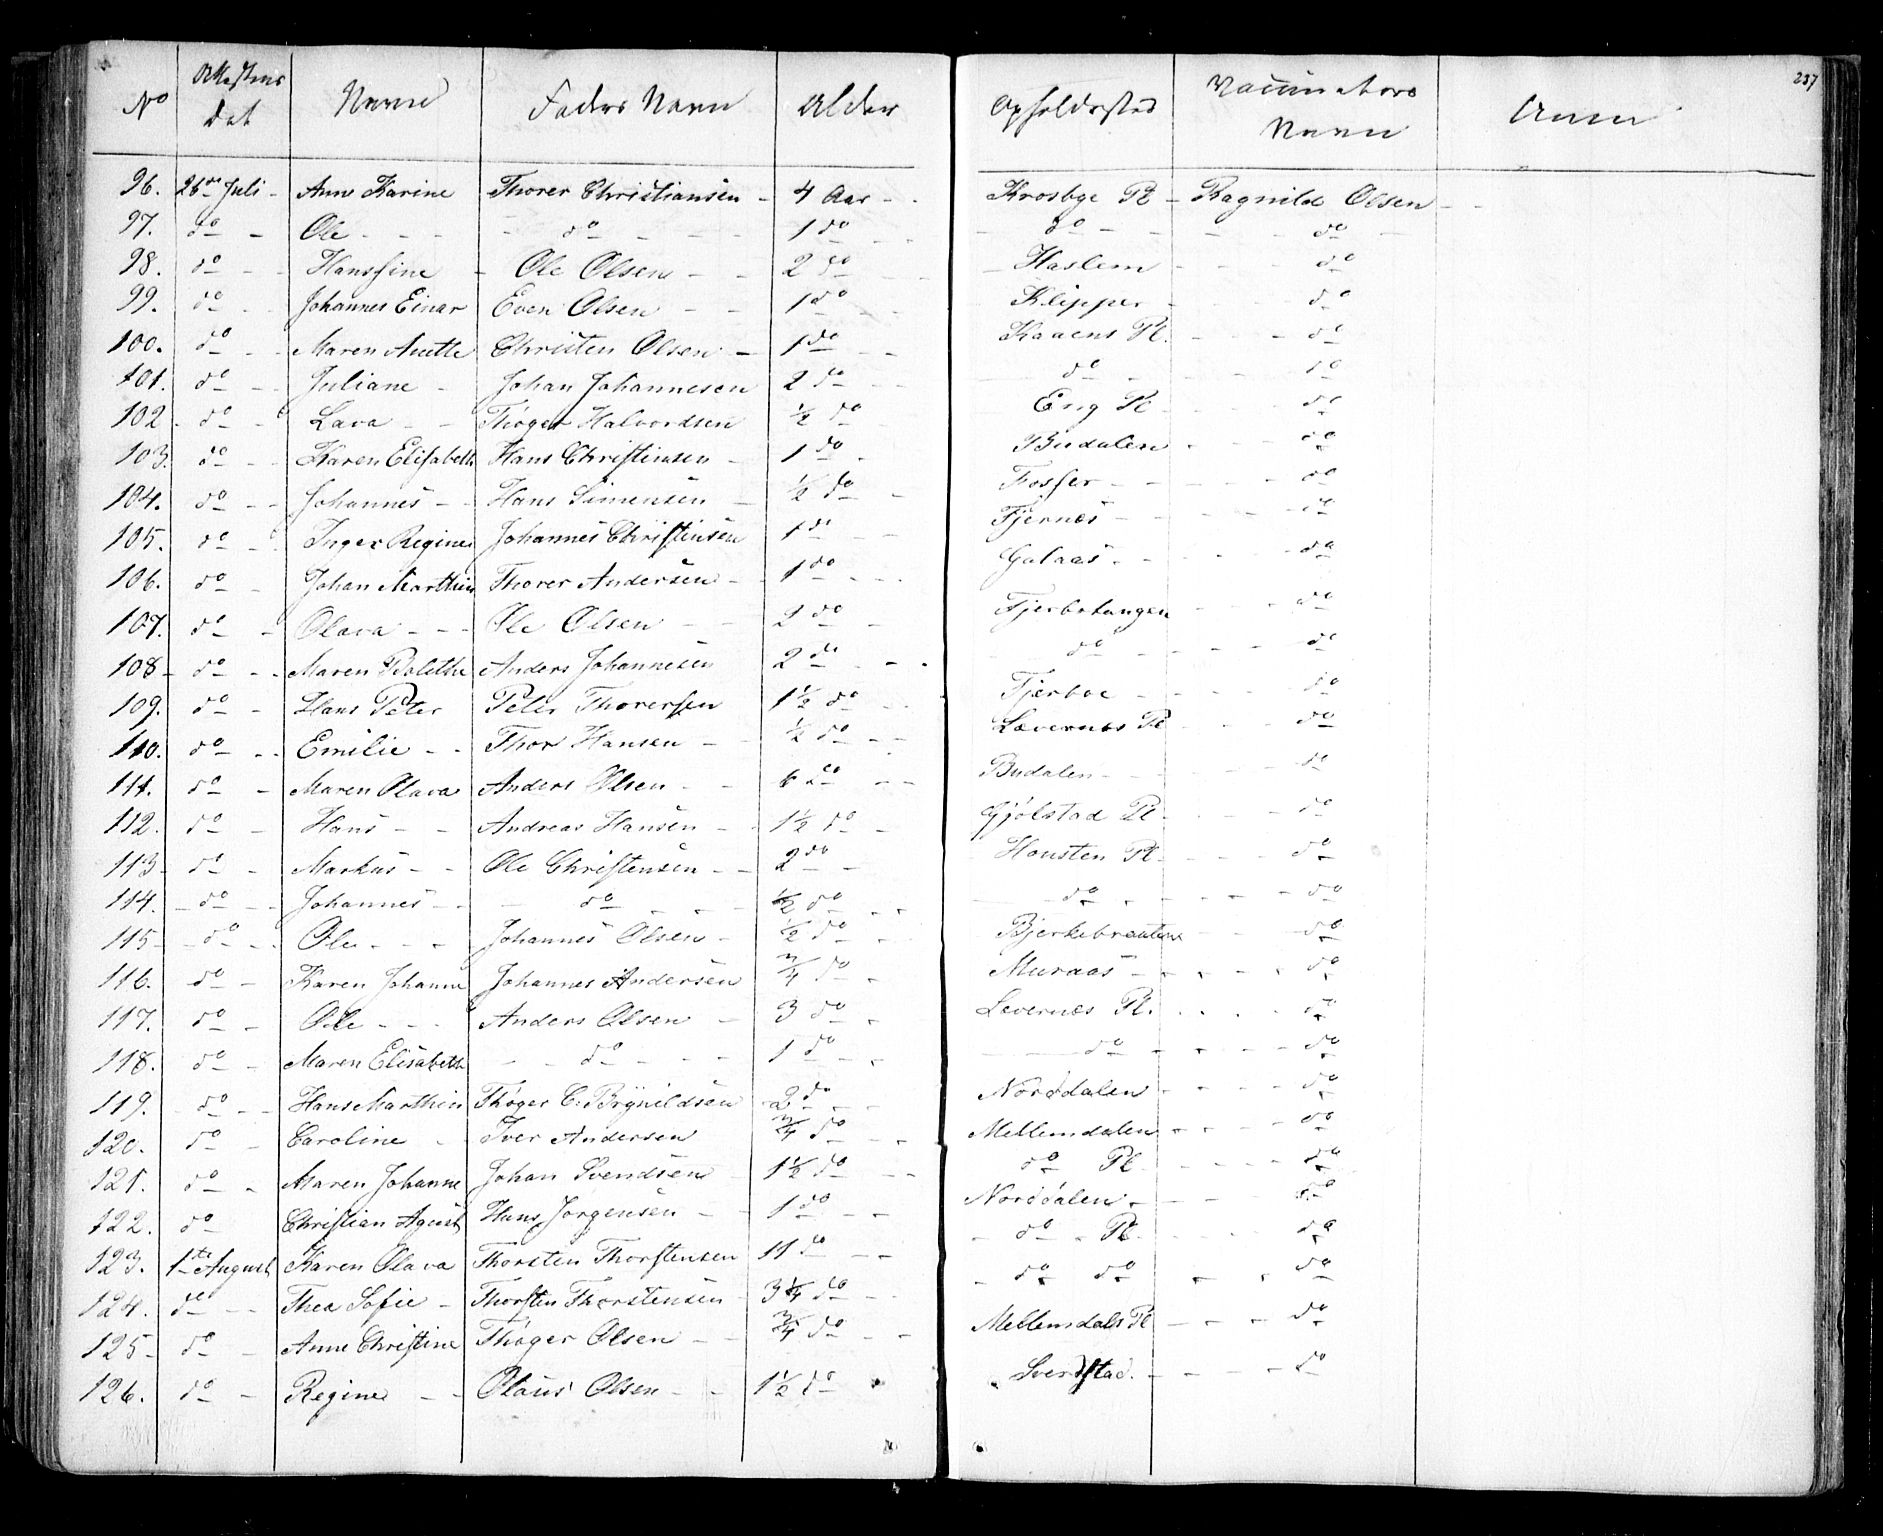 237
No | Attestens Dat | Navn | Faders Navn | Alder | Opholdssted | Vaccinators Navn | Anm
96. | 26de Juli | Anne Karine | Thorer Christiansen | 4 Aar | Krosbye Pl | Ragnild Olsen
97. | do | Ole | do | 1 do | do | do
98. | do | Hansine | Ole Olsen | 2 do | Haslem | do
99. | do | Johannes Einar | Even Olsen | 1 do | Klipper | do
100. | do | Maren Anette | Christen Olsen | 1 do | Kaaens Pl. | do
101. | do | Juliane | Johan Johannesen | 2 do | do | do
102. | do | Lava | Thøger Halvordsen | ½ do | Eng Pl | do
103. | do | Karen Elisabeth | Hans Christinsen | 1 do | Budalen | do
104. | do | Johannes | Hans Simensen | ½ do | Fosser | do
105. | do | Inger Regine | Johannes Christinsen | 1 do | Fjernes | do
106. | do | Johan Marthin | Thorer Andersen | 1 do | Galaas | do
107. | do | Olava | Ole Olsen | 2 do | Tjerbotangen | do
108 | do | Maren Bolethe | Anders Johannesen | 2 do | do | do
109. | do | Hans Peter | Peter Thorersen | 1½ do | Tjerboe | do
110. | do | Emilie | Thor Hansen | ½ do | Levernes Pl | do
111. | do | Maren Olava | Anders Olsen | 6 do | Budalen | do
112. | do | Hans | Andreas Hansen | 1½ do | Gjølstad Pl | do
113 | do | Markus | Ole Christensen | 2 do | Honsten Pl | do
114. | do | Johannes | do | ½ do | do | do
115 | do | Ole | Johannes Olsen | ½ do | Bjerkebrauten | do
116. | do | Karen Johanne | Johannes Andersen | ¾ do | Muraas | do
117. | do | Ole | Anders Olsen | 3 do | Levernes Pl. | do
118. | do | Maren Elisabeth | do | 1 do | do | do
119. | do | Hans Marthin | Thøger C. Brynildsen | 2 do | Norddalen | do
120. | do | Caroline | Iver Andersen | ¾ do | Mellemdalen | do
121. | do | Maren Johanne | Johan Svendsen | 1½ do | do Pl. | do
122. | do | Christian Agust | Hans Jørgensen | 1 do | Norddalen | do
123. | 1te August | Karen Olava | Thorsten Thorstensen | 11 do | do Pl. | do
124. | do | Thea Sofie | Thorsten Thorstensen | 3¼ do | do do | do
125 | do | Anne Christine | Thøger Olsen | ¾ do | Mellemdals Pl | do
126. | do | Regine | Olaus Olsen | 1½ do | Sverdstad. | do